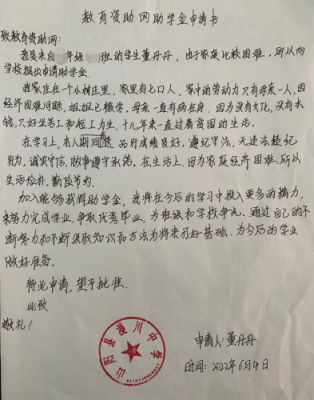 教育资助网助学金申请书
致教育资助网:
我是来自 年级 班的学生董丹丹,由于家庭比较困难,所以向
学校提出申请助学金.
我家住在一个小村庄里,家里有七口人,家中的劳动力只有母亲一人,因
经济困难问题,姐姐已辍学,母亲一直有病在身,因为没有文化,没有本
钱,只好坐苦工和短工为生,十九年来一直过着贫困的生活.
在学习上,本人 品行成绩良好,遵纪守法,无违法违纪
行为,诚实守信,做事遵守承诺.在生活上,因为家庭经济困难,所以
生活俭朴,勤俭节约.
加入能够获得助学金,我将在今后的学习中投入更多的精力,
来努力完成学业,争取优秀毕业,为班级和学校争光.通过自己的不
断努力和不断汲取知识和方法为将来打好基础,为今后的学业
做好准备.
特此申请,望予批准.
此致
敬礼!
申请人:董丹丹
时间:2022年6月4日
山阴县 川中学